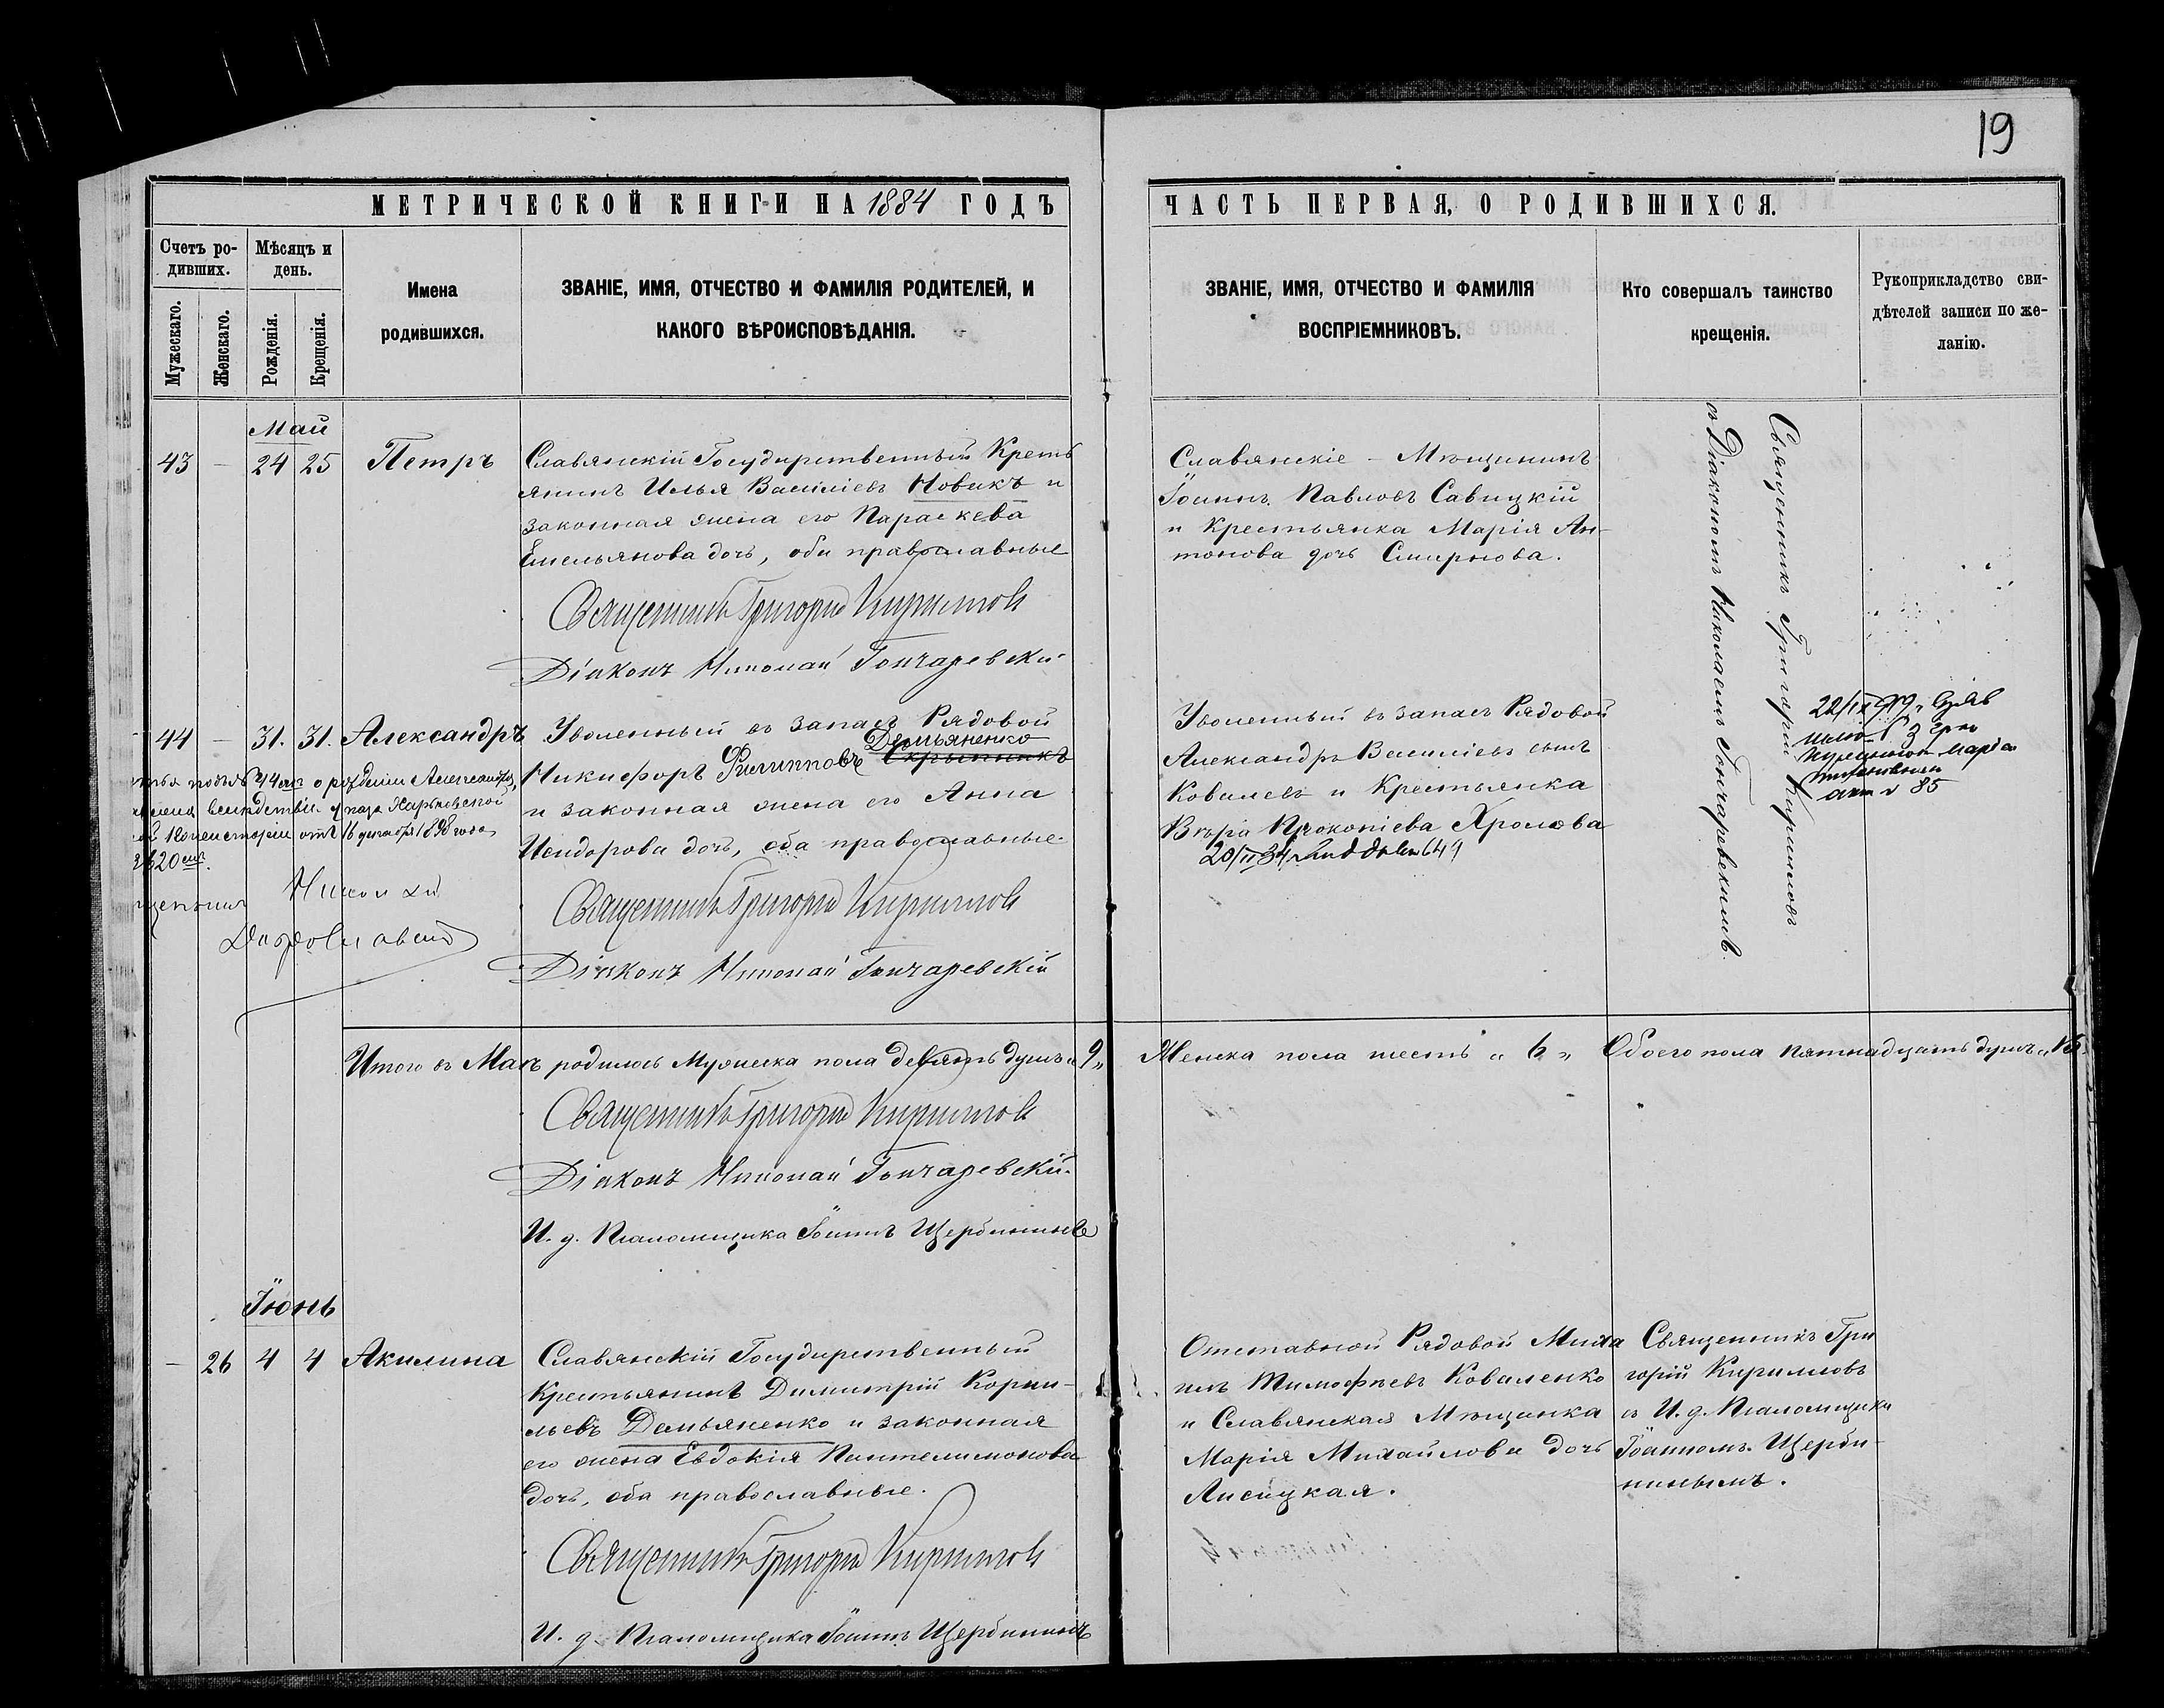 19
МЕТРИЧЕСКОЙ КНИГИ НА 1884 ГОДЪ
ЧАСТЬ ПЕРВАЯ, О РОДИВШИХСЯ.
Счетъ ро-
дившихъ.
Мѣсяцъ и
день.
Мужескаго.
Женскаго.
Рожденія.
Крещенія.
Имена
родившихся.
ЗВАНІЕ, ИМЯ, ОТЧЕСТВО И ФАМИЛІЯ РОДИТЕЛЕЙ, И
КАКОГО ВѢРОИСПОВѢДАНІЯ.
ЗВАНІЕ, ИМЯ, ОТЧЕСТВО И ФАМИЛІЯ
ВОСПРІЕМНИКОВЪ.
Кто совершалъ таинство
крещенія.
Рукоприкладство сви-
дѣтелей записи по же-
ланію.
Май
43 - 24 25 Петръ
Славянскій Государственный Кресть
янинъ Илья Василіевъ Новикъ и
законная жена его Параскева
Емельянова дочь, оба православные
Священникъ Григорій Кирилловъ
Діаконъ Николай Гончаревскій
Славянскіе - Мѣщанинъ
Іоаннъ Павловъ Савицкій
и Крестьянка Марія Ан-
тонова дочь Смирнова.
Священникъ Григорій Кирилловъ
съ Діакономъ Николаемъ Гончаревскимъ
44 - 31. 31. Александръ
Уволенный въ запасъ Рядовой
Демьяненко
Никифоръ Филипповъ Скрыпникъ
и законная жена его Анна
Исидорова дочь, оба православные
Священникъ Григорій Кирилловъ
Діаконъ Николай Гончаревскій
Уволенный въ запасъ Рядовой
Александръ Василіевъ сынъ
Ковалевъ и Крестьянка
Вѣра Прокопіева Хролова
20/II 34 649
85
подъ № 44 о рожденіи Александра
вслѣдствіе указа Харьковской
Консисторіи отъ 16 декабря 1898 года
Николай
Итого въ Маѣ родилось Мужеска пола девять душъ „9„
Женска пола шесть „6„ Обоего пола пятнадцать душъ „15
Священникъ Григорій Кирилловъ
Діаконъ Николай Гончаревскій
И. д. Псаломщика Іоаннъ Щербининъ
Іюнь
- 26 4 4 Акилина
Славянскій Государственный
Крестьянинъ Димитрій Корни-
льевъ Демьяненко и законная
его жена Евдокія Пантелимонова
дочь, оба православные.
Священникъ Григорій Кирилловъ
И. д. Псаломщика Іоаннъ Щербининъ
Отставной Рядовой Миха
илъ Тимофѣевъ Коваленко
и Славянская Мѣщанка
Марія Михайлова дочь
Лисицкая.
Священникъ Гри
горій Кирилловъ
съ И. д. Псаломщика
Іоанномъ Щерби-
нинымъ.